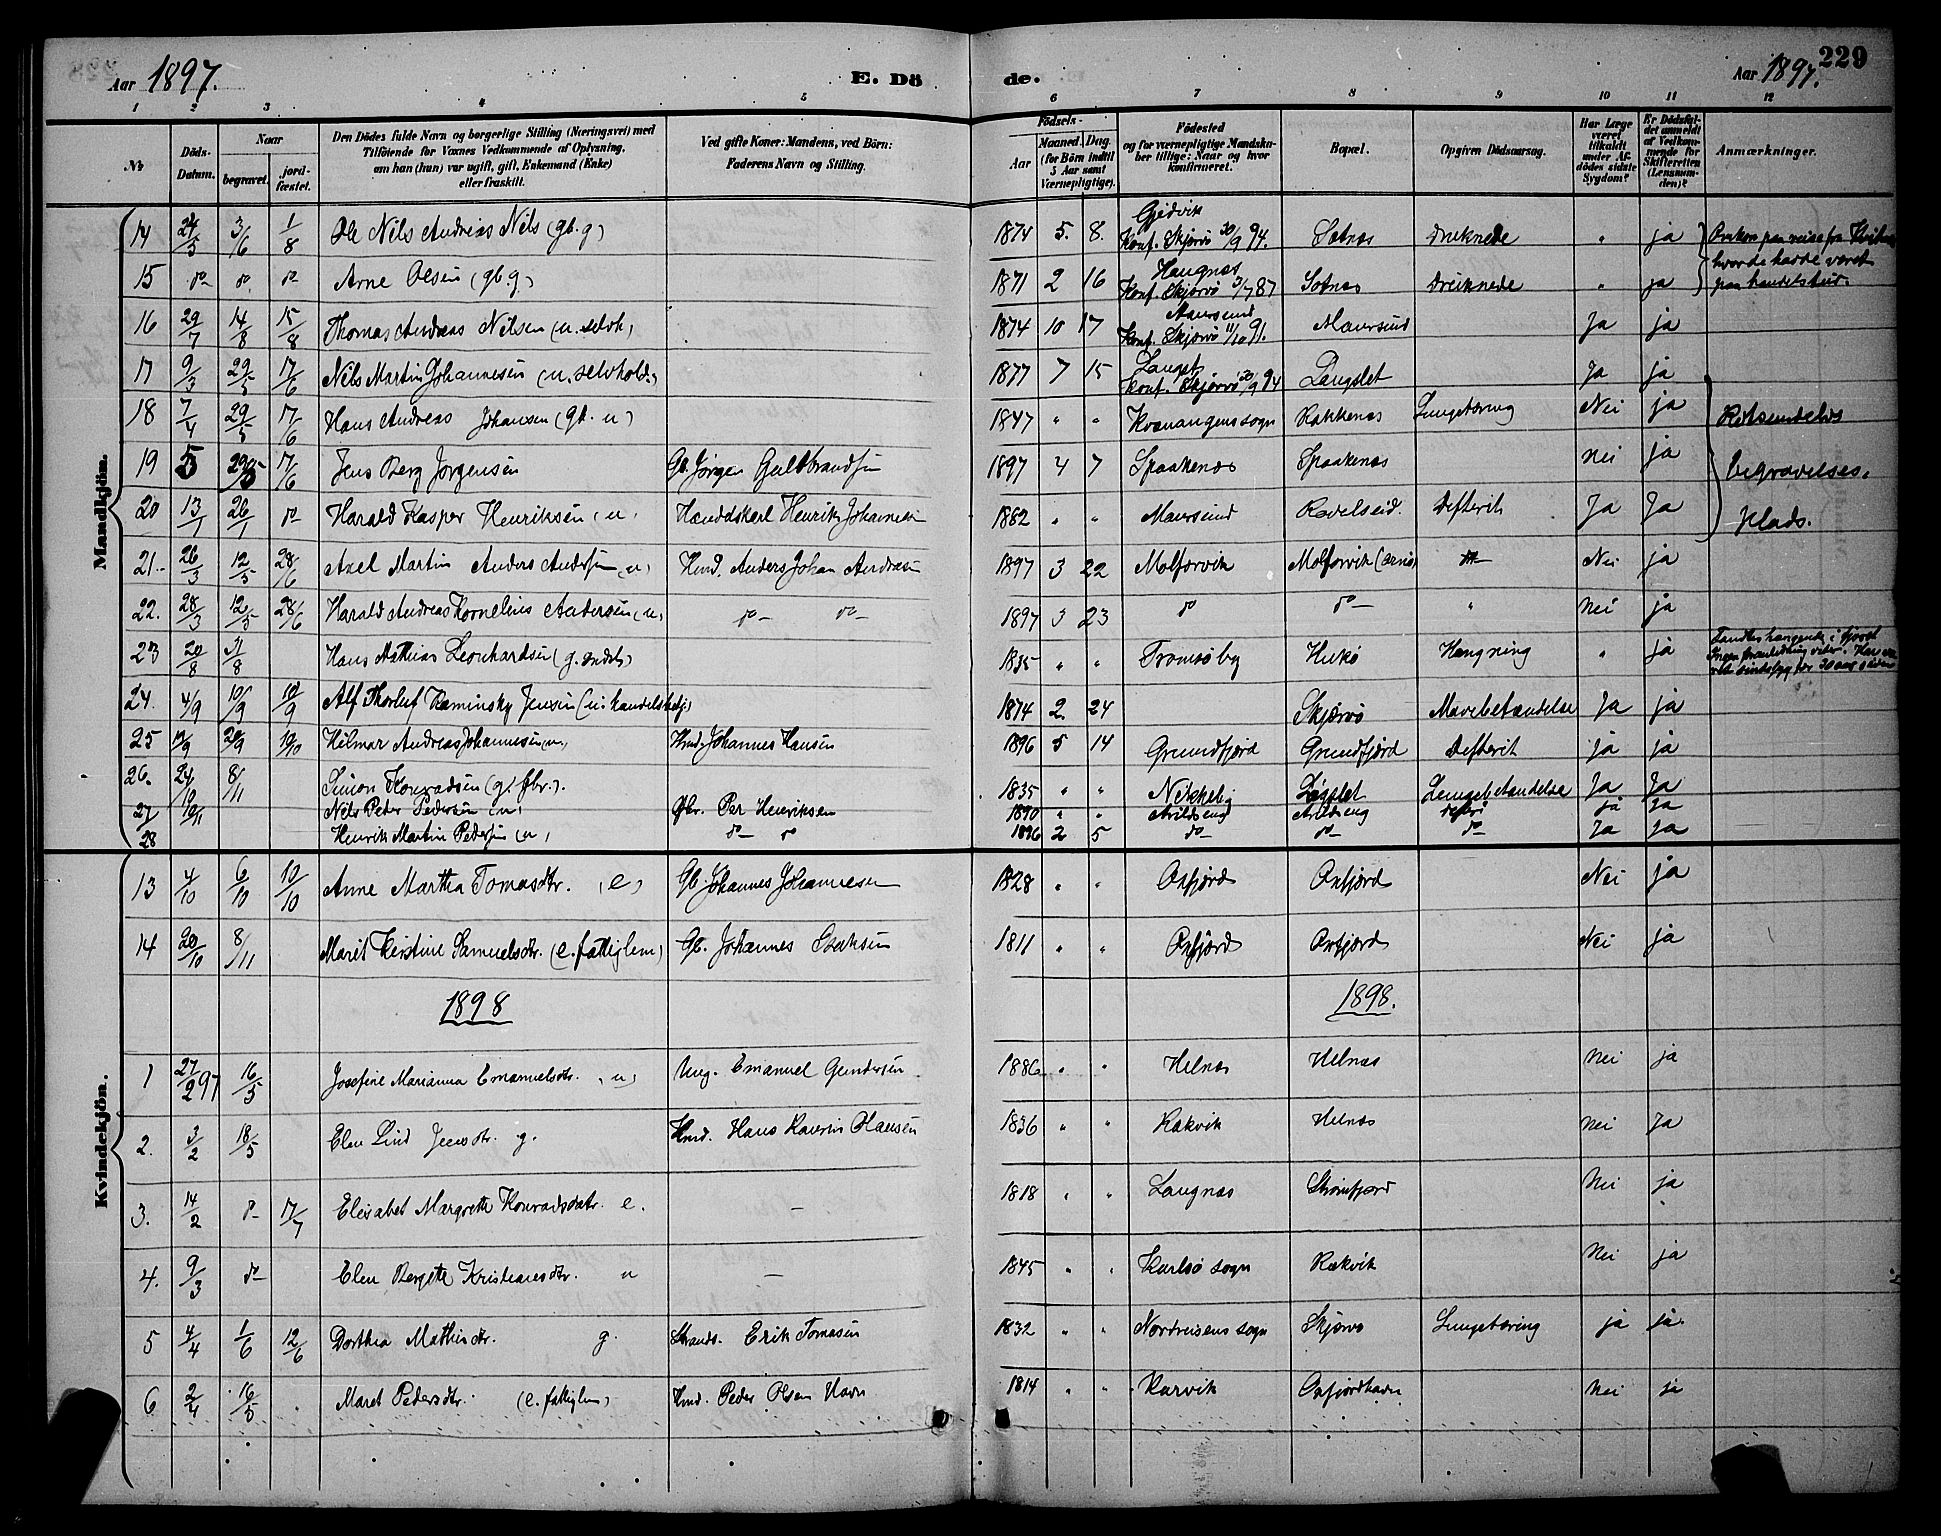 229
Aar 1897.
E. Døde.
Aar 1897.
1 2 3 4 5 6 7 8 9 10 11 12
№
Döds-Datum.
Naar
begravet.
jordfæstet.
Den Dödes fulde Navn og borgerlige Stilling (Næringsvei) med
Tilföiende for Voxnes Vedkommende af Oplysning,
om han (hun) var ugift, gift, Enkemand (Enke)
eller fraskilt.
Ved gifte Koner: Mandens, ved Börn:
Faderens Navn og Stilling.
Födsels-
Aar
Maaned Dag
(for Börn indtil
5 Aar samt
Værnepligtige).
Födested
og for værnepligtige Mandska-
ber tillige: Naar og hvor
konfirmeret.
Bopæl.
Opgiven Dödsaarsag.
Har Læge
været
tilkaldt
under Af-
dödes sidste
Sygdom?
Er Dödsfal-
det anmeldt
af Vedkom-
mende for
Skifteretten
(Lensman-
den)?
Anmærkninger.
Mandkjön.
14 24/5 3/6 1/8 Ole Nils Andreas Nils (gb. g) 1874 5. 8. Gjedvik Konf. Skjervö 30/9 94. Sotnæs Druknede " ja
15 do do do Arne Olsen (gb. g) 1871 2 16 Haugnæs Konf. Skjervö 3/7 87 Sotnæs Druknede " ja
Omkom paa reise fra
hvor de havde været
paa handelstur.
16 29/7 14/8 15/8 Thomas Andreas Nilsen (u. selvh) 1874 10 17 Maursund Konf. Skjervö 11/10 91. Maursund Ja ja
17 9/3 29/5 17/6 Nils Martin Johannesen (u. selvhold.) 1877 7 15 Langslet Konf. Skjervö 30/9 94 Langslet Ja ja
18 7/4 29/5 17/6 Hans Andreas Johansen (gb. u) 1847 " " Kvænangens sogn Rakkenæs Lungetæring Nei ja
19 5 29/5 17/6 Jens Berg Jørgensen Gb. Jørgen Guldbrandsen 1897 4 7 Spaakenæs Spaakenæs nei ja
20 13/1 26/1 do Harald Kasper Henriksen (u) Handelskarl Henrik Johannesen 1882 " " Maursund Ravelseid. Defterit Ja Ja
Rotsundelvs
begravelses.
plads.
21. 26/3 12/5 28/6 Axel Martin Anders Andersen (u) Hmd. Anders Johan Andreasen 1897 3 22 Molforvik Molforvik (Arnö) Nei ja
22. 28/3 12/5 28/6 Harald Andreas Kornelius Andersen (u) do do 1897 3 23 do do " nei ja
23 20/8 31/8 Hans Mathias Leonhardsen (g. inders) 1835 " " Tromsö by Hukö Hengning " ja
Fandtes hængende i fjøset
24. 4/9 10/9 10/9 Alf Thorleif Kaminsky Jensen (u. handelsbetj.) 1874 2 24 Skjervö Mavebetændelse Ja ja
25 14/9 20/9 10/10 Hilmar Andreas Johannesen (u) Hmd. Johannes Hansen 1896 5 14 Grundfjord Grundfjord Defterit ja ja
26. 24/10 8/11 Simon Konradsen (g. fbr.). 1835 " " Nikkeby Løgslet Lungebetændelse Ja Ja
27 10/11 Nils Peder Pedersen (u) Gbr. Per Henriksen 1890 " " Arildseng Arildseng difteri ja ja
28 Henrik Martin Pedersen (u) do do 1896 2 5 do do do Ja Ja
Kvindekjön.
13 4/10 6/10 10/10 Anne Martha Tomasdtr. (e) Gb. Johannes Johannesen 1828 " " Oxfjord Oxfjord Nei ja
14 20/10 8/11 Marit Kirstine Samuelsdtr. (e. fattiglem) Gb. Johannes Isaksen 1811 " " Oxfjord Oxfjord Nei ja
1898 1898.
1 27/2 97 16/5 Josefine Marianna Emanuelsdtr. (u) Ung. Emanuel Gundersen 1886 " " Helnæs Helnæs nei ja
2. 3/2 18/5 Elen Lind Jensdtr. g. Hmd. Hans Laurin Hansen 1836 " " Rakvik Helnæs nei Ja
3. 14/2 do 17/7 Elisabet Margrethe Konradsdatr. e. — 1818 " " Langnæs Strømfjord Nei ja
4. 9/3 do Elen Bergitte Kristiansdtr. u — 1845 " " Karlsö sogn Rækvik Nei ja
5 4/4 1/6 12/6 Dorthea Mathisdtr. g. Strands. Erik Tomasen 1832 " " Nordreisens sogn Skjervö Lungetæring ja ja.
6 2/4 16/5 Maret Pedersdtr. (e. fattiglem) Hmd. Peder Olsen Havn 1814 " " Karvik Oxfjordhavn nei ja